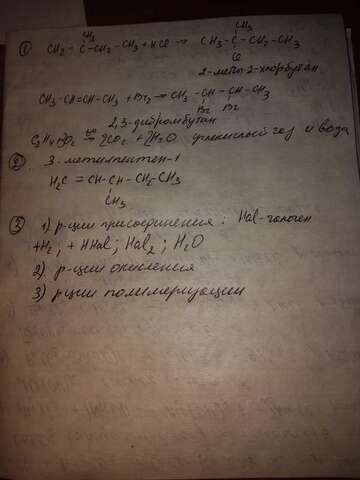 ① CH₂ = C - CH₂ - CH₃ + HCl → CH₃ - C - CH₂ - CH₃
CH₃ CH₃
Cl
2-метил-2-хлорбутан
CH₃ - CH = CH - CH₃ + Br₂ → CH₃ - CH - CH - CH₃
Br Br
2,3-дибромбутан
C₂H₄ + 3O₂ → 2CO₂ + 2H₂O углекислый газ и вода
② 3-метилпентен-1
H₂C = CH - CH - CH₂ - CH₃
CH₃
③ 1) р-ции присоединения: Hal - галоген
+H₂, + HHal; Hal₂; H₂O
2) р-ции окисления
3) р-ции полимеризации